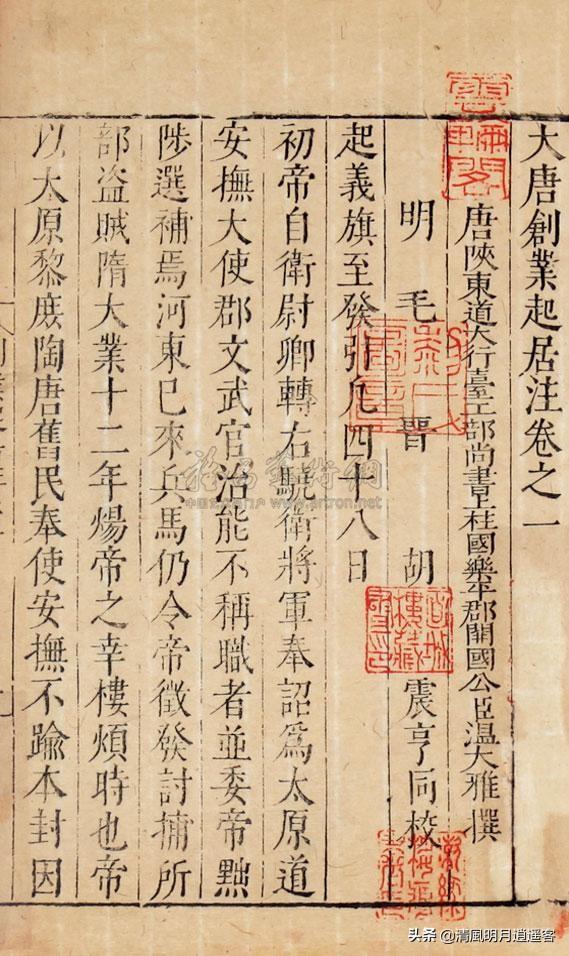 大唐創業起居注卷之一
唐陝東道大行臺工部尚書上柱國樂平郡開國公臣溫大雅撰
明 毛 晉 胡 震亨同校
起義旗至發引凡四十八日
初帝自衛尉卿轉右驍衛將軍奉詔爲太原道
安撫大使郡文武官治能不稱職者並委帝黜
陟選補焉河東已來兵馬仍令帝徵發討捕所
部盜賊隋大業十二年煬帝之幸樓煩時也帝
以太原黎庶陶唐舊民奉使安撫不踰本封因
雅昌藝術網
www.artron.net
头条 @清風明月逍遥客